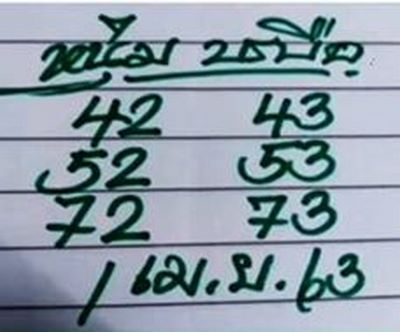 บรบือ
42 43
52 53
72 73
1 เม.ย. 63